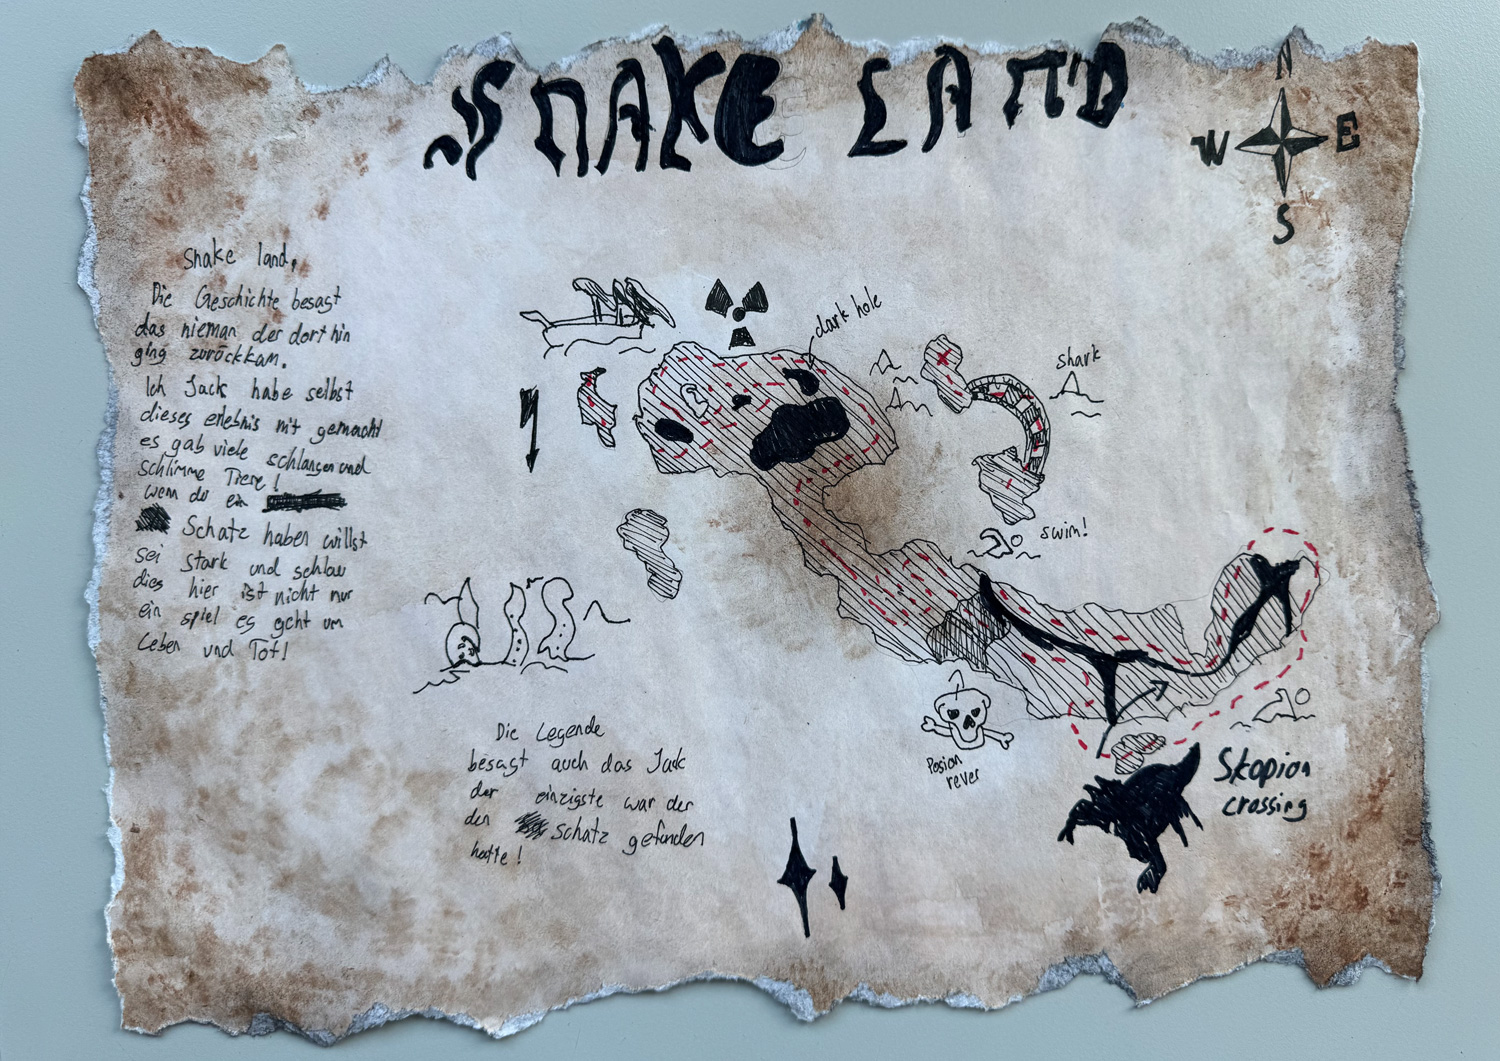 SNAKE LAND
N
W E
S
Snake land,
Die Geschichte besagt
das nieman der dort hin
ging zurückkam.
Ich Jack habe selbst
dieses erlebnis mit gemacht
es gab viele schlangen und
schlimme Tiere!
wen du ein
Schatz haben willst
sei stark und schlau
dies hier ist nicht nur
ein spiel es geht um
Leben und Tot!
dark hole
shark
swim!
Posion
rever
Skopion
crossing
Die Legende
besagt auch das Jack
der einzigste war der
den Schatz gefunden
hatte!